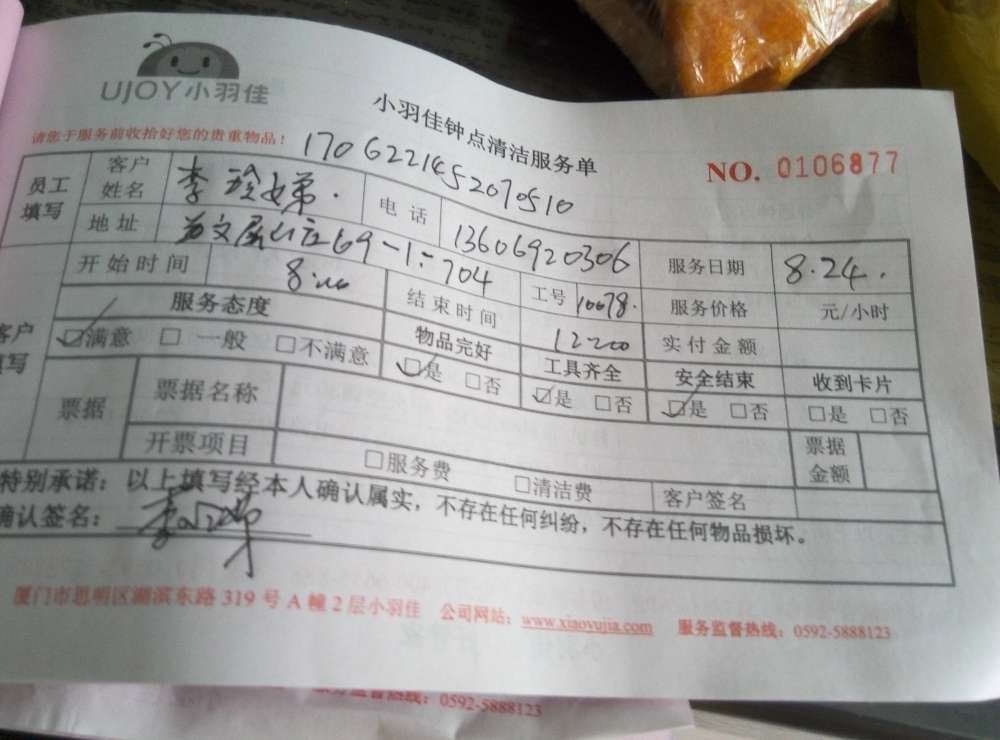 UJOY小羽佳
小羽佳钟点清洁服务单
请您于服务前收拾好您的贵重物品！
NO. 0106877
1706221452070510
员工填写 客户姓名 李 弟 电话 13606920306 服务日期 8.24.
地址 山庄69-1-704
开始时间 8:00 结束时间 12:00 工号 10078. 服务价格 元/小时
实付金额
客户填写 服务态度 物品完好 工具齐全 安全结束 收到卡片
☑满意 □一般 □不满意 ☑是 □否 ☑是 □否 ☑是 □否 □是 □否
票据 票据名称 票据金额
开票项目 □服务费 □清洁费 客户签名
特别承诺：以上填写经本人确认属实，不存在任何纠纷，不存在任何物品损坏。
确认签名：
厦门市思明区湖滨东路 319 号 A 幢 2 层小羽佳 公司网站：www.xiaoyujia.com 服务监督热线：0592-5888123
服务监督热线：0592-5888123